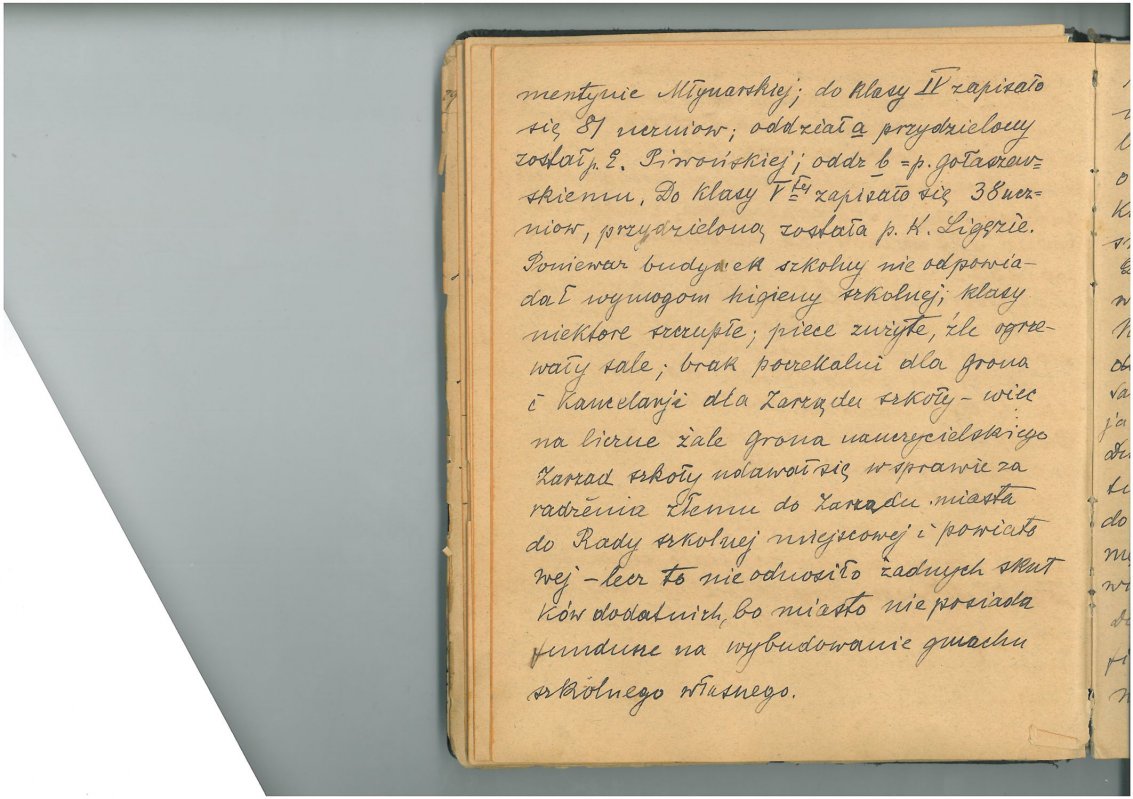 mentynie Młynarskiej; do klasy IV zapisało
się 81 uczniow; oddział a przydzielony
został p. E. Piwońskiej; oddz b = p. gołaszew=
skiemu, Do klasy V tej zapisało się 38 ucz=
niow, przydzieloną została p. K. Ligęzie.
Poniewaz budynek szkolny nie odpowia-
dał wymogom higieny szkolnej; klasy
niektore szczupłe; piece zużyte, źle ogrze-
wały sale; brak poczekalni dla grona
i kancelarji dla Zarządu szkoły - wiec
na liczne żale grona nauczycielskiego
Zarzad szkoły udawał się w sprawie za
radzenia złemu do Zarządu miasta
do Rady szkolnej miejscowej i powiato
wej - lecz to nie odnosiło żadnych skut
ków dodatnich, bo miasto nie posiada
fundusze na wybudowanie gmachu
szkolnego własnego.